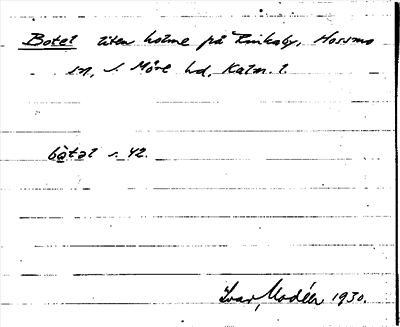 Botel liten holme på Rinkaby, Mossmo
sn, S. Möre hd, Kalm. l.
bòtəl s. 42.
Ivar Modéer 1930.